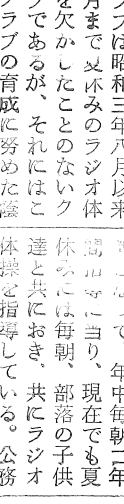 ブは昭和三年八月以来
月まで夏休みのラジオ体
を欠かしたことのないク
ブであるが、それにはこ
ラブの育成に努めた蔭
つて、年中毎朝一年
間指導に当り、現在でも夏
休みには毎朝、部落の子供
達と共におき、共にラジオ
体操を指導している。公務